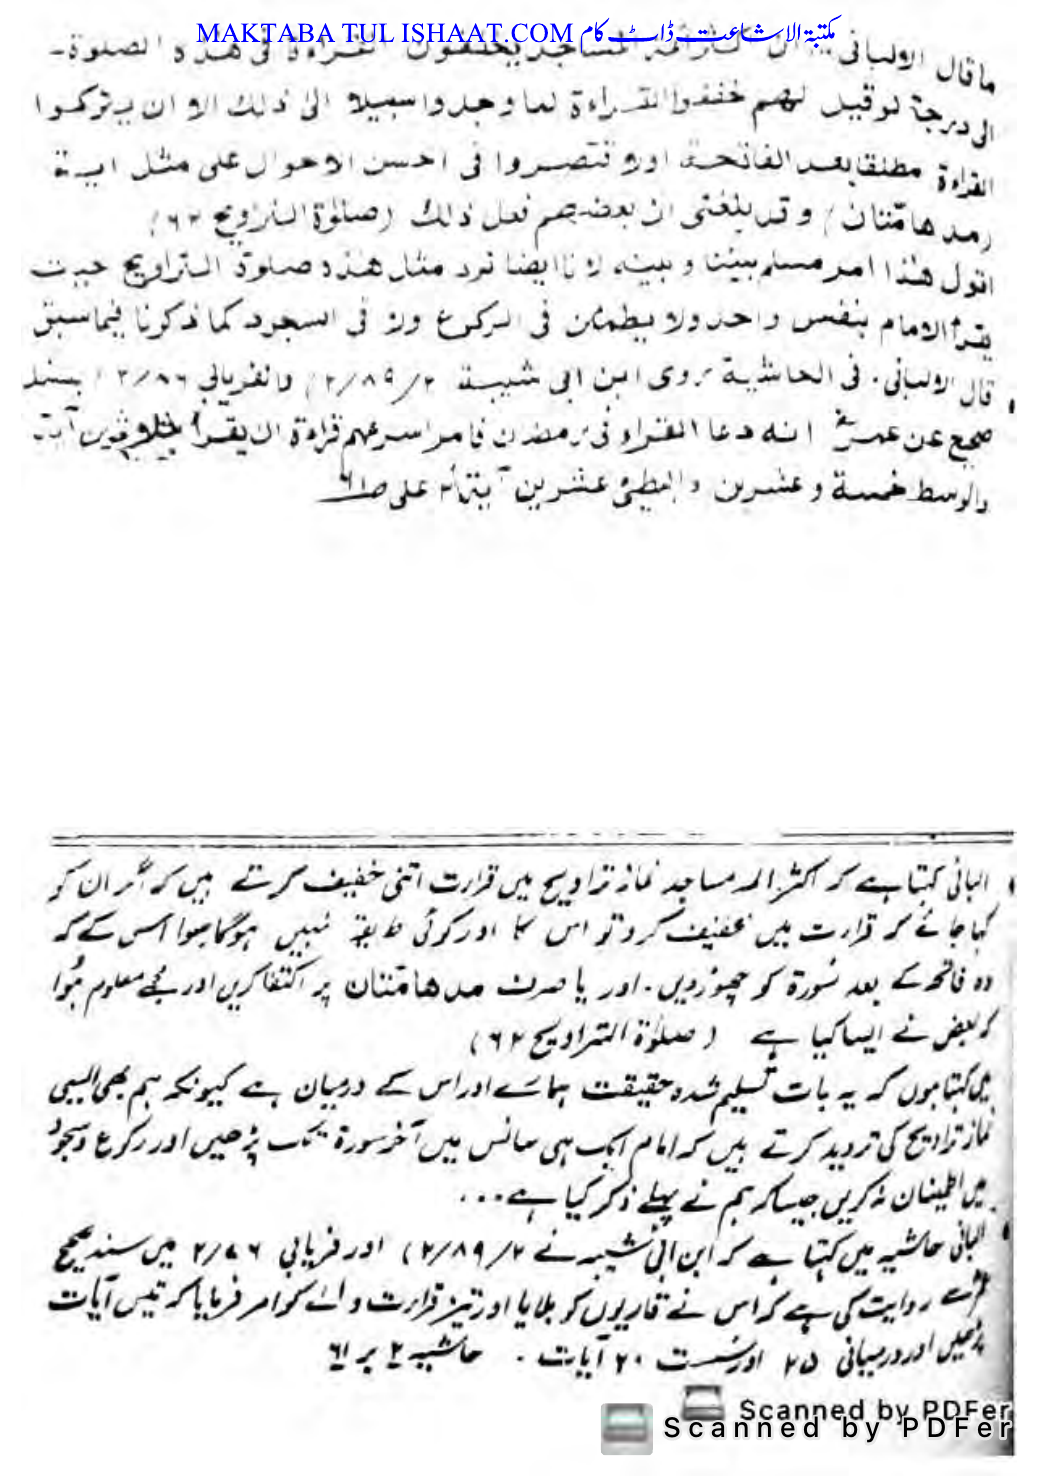 MAKTABA TUL ISHAAT.COM مکتبۃ الاشاعت ڈاٹ کام
ما قال الالبانی ائمة المساجد يخففون القراءة فی هذه الصلوة۔
الی درجة لو قيل لهم خففوا القراءة لما وجدوا سبيلا الی ذلك الا ان يتركوا
القراءة مطلقا بعد الفاتحة او يقتصروا فی احسن الاحوال علی مثل اية
(مدهامّتان) و قد بلغنی ان بعضهم فعل ذلك (صلوٰة التراويح ۶۲)
اقول هٰذا امر مسلم بيننا و بينه، لاناايضا نرد مثل هذه صلوة التراويح حيث
يقرأ الامام بنفس واحد ولا يطمئن فی الركوع ولا فی السجود كما ذكرنا فيما سبق
قال الالبانی۔ فی الحاشية روی ابن ابی شيبة ۲/۸۹/۲) والفريابی ۲/۸۶) بسند
صحيح عن عمرؓ انه دعا القراء فی رمضان فامر اسرعهم قراءة ان يقرأ ثلاثين آية
والوسط خمسة و عشرين والبطئ عشرين آية علی ص۶۱
البانی کہتا ہے کہ اکثر ائمہ مساجد نماز تراویح میں قرارت اتنی خفیف کرتے ہیں کہ اگر ان کو
کہا جائے کہ قرارت میں تخفیف کرو تو اس کا اور کوئی طریقہ نہیں ہوگا سوا اس کے کہ
وہ فاتحہ کے بعد سورۃ کو چھوڑ دیں۔ اور یا صرف مدھامّتان پر اکتفا کریں اور مجھے معلوم ہُوا
کہ بعض نے ایسا کیا ہے (صلوٰۃ التراویح ۶۲)
میں کہتا ہوں کہ یہ بات تسلیم شدہ حقیقت ہمارے اور اس کے درمیان ہے کیونکہ ہم بھی ایسی
نماز تراویح کی تردید کرتے ہیں کہ امام ایک ہی سانس میں آخر سورۃ تک پڑھیں اور رکوع و سجود
میں اطمینان نہ کریں جیسا کہ ہم نے پہلے ذکر کیا ہے...
البانی حاشیہ میں کہتا ہے کہ ابن ابی شیبہ نے ۲/۸۹/۲) اور فریابی ۲/۷۶ میں سند صحیح
عمرؓ سے روایت کی ہے کہ اس نے قاریوں کو بلایا اور تیز قرارت والے کو امر فرمایا کہ تیس آیات
پڑھیں اور درمیانی ۲۵ اور سست ۲۰ آیات۔ حاشیہ ۲ بر ۶۱
Scanned by PDFer
Scanned by PDFer